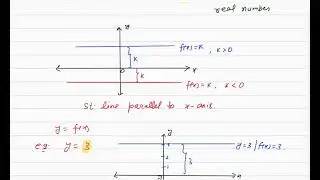 real number
y
f(x)=k , k>0
k
o
x
k
f(x)=k , k<0
St. line parallel to x-axis.
y = f(x)
eg: y = 3
y
y=3/f(x)=3.
3